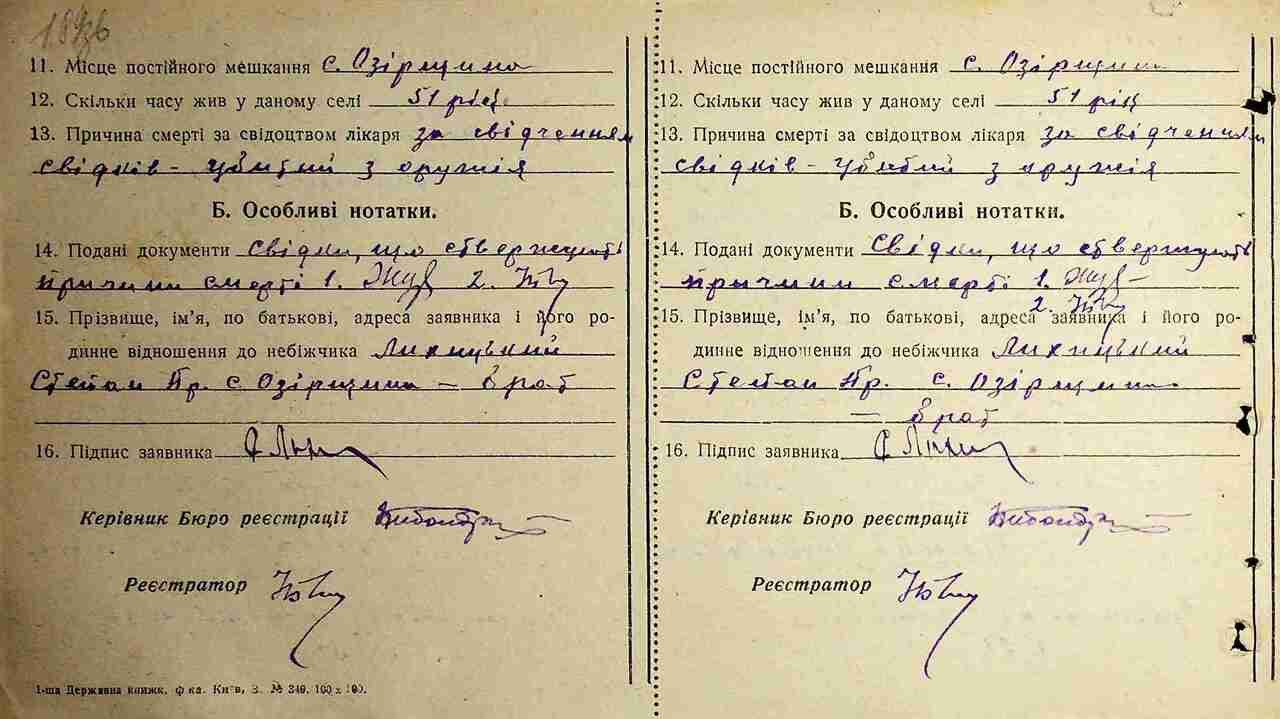 11. Місце постійного мешкання с. Озірщина
12. Скільки часу жив у даному селі 51 рік
13. Причина смерті за свідоцтвом лікаря за свідченням
свідків - убитий з оружія
Б. Особливі нотатки.
14. Подані документи Свідки, що ствержують
причини смерті 1. 2.
15. Прізвище, ім'я, по батькові, адреса заявника і його ро-
динне відношення до небіжчика Лихицький
Степан Пр. с. Озірщина - брат
16. Підпис заявника
Керівник Бюро реєстрації
Реєстратор
1-ша Державна книжк. ф-ка. Київ, З. № 349. 100 х 100.
11. Місце постійного мешкання с. Озірщина
12. Скільки часу жив у даному селі 51 рік
13. Причина смерті за свідоцтвом лікаря за свідченням
свідків - убитий з оружія
Б. Особливі нотатки.
14. Подані документи Свідки, що ствержують
причини смерті 1.
2.
15. Прізвище, ім'я, по батькові, адреса заявника і його ро-
динне відношення до небіжчика Лихицький
Степан Пр. с. Озірщина
- брат
16. Підпис заявника
Керівник Бюро реєстрації
Реєстратор